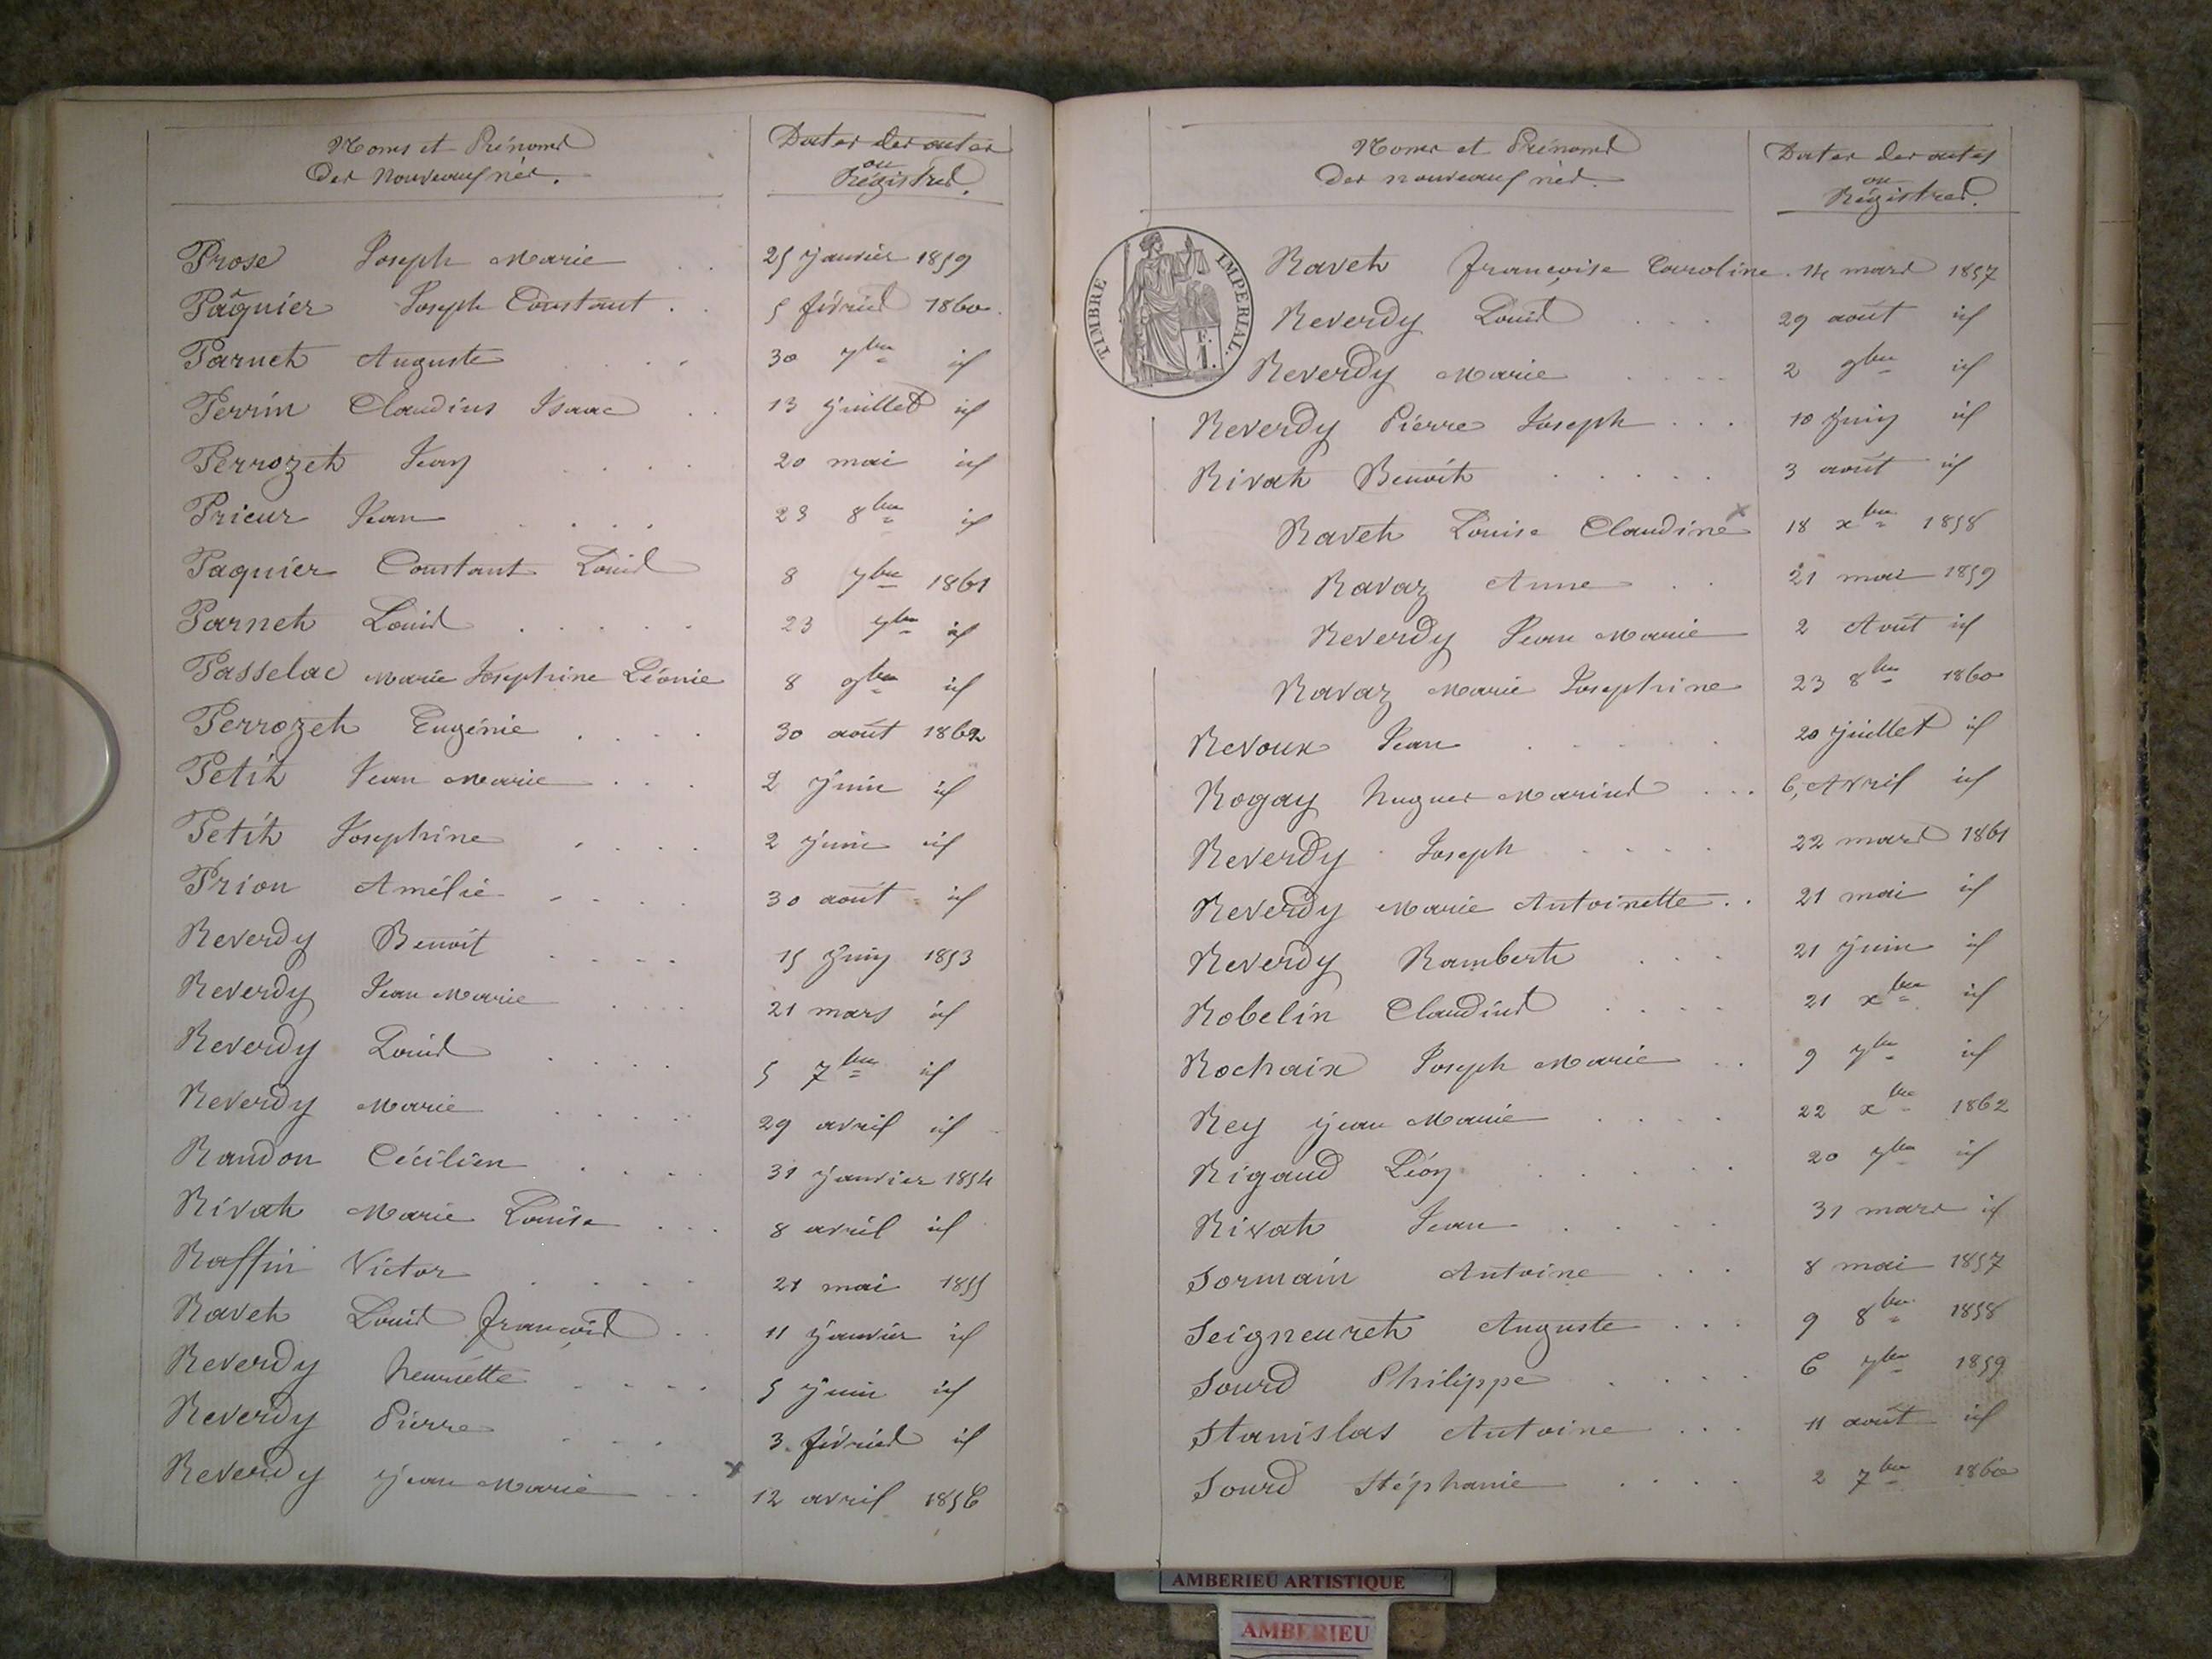 Noms et Prénoms
des nouveaux nés.
Dates des actes
ou
Régistres.
Prose Joseph Marie . . 25 janvier 1859
Pâquier Joseph Constant . . 5 février 1860.
Parnet Auguste . . . 30 7bre id
Perrin Claudius Isaac . . 13 juillet id
Perrozet Jean . . . . 20 mai id
Prieur Jean . . . . 23 8bre id
Paquier Constant Louis 8 7bre 1861
Parnet Louis . . . . . 23 7bre id
Passelac Marie Joséphine Léonie 8 9bre id
Perrozet Eugénie . . . . 30 août 1862
Petit Jean Marie . . . 2 juin id
Petit Joséphine . . . . 2 juin id
Prion Amélie . . . . 30 août id
Reverdy Benoît . . . . 15 juin 1853
Reverdy Jean Marie . . . . 21 mars id
Reverdy Louis . . . . 5 7bre id
Reverdy Marie . . . . . 29 avril id
Randon Cécilien . . . . 31 janvier 1854
Rivat Marie Louise . . . 8 avril id
Raffin Victor . . . . 21 mai 1855
Ravet Louis François . . 11 janvier id
Reverdy henriette . . . . 5 juin id
Reverdy Pierre . . . 3 février id
Reverdy jean Marie . . x 12 avril 1856
Noms et Prénoms
des nouveaux nés.
Dates des actes
ou
Régistres.
TIMBRE IMPERIAL.
Ravet Françoise Caroline . 14 mars 1857
Reverdy Louis . . . 29 août id
Reverdy Marie . . . . 2 9bre id
Reverdy Pierre Joseph . . . 10 juin id
Rivat Benoît . . . . . 3 août id
Ravet Louise Claudine x 18 xbre 1858
Ravaz Anne . . 21 mai 1859
Reverdy Jean Marie 2 Août id
Ravaz Marie Joséphine 23 8bre 1860
Revoux Jean . . . . 20 juillet id
Rogay hugues Marius . . . 6, Avril id
Reverdy Joseph . . . . 22 mars 1861
Reverdy Marie Antoinette . . 21 mai id
Reverdy Rambert . . . 21 juin id
Robelin Claudius . . . . 21 xbre id
Rochaix Joseph Marie . . 9 7bre id
Rey jean Marie . . . . 22 xbre 1862
Rigaud Léon . . . . . 20 7bre id
Rivat Jean . . . . 31 mars id
Sormain Antoine . . . 8 mai 1857
Seigneuret Auguste . . . 9 8bre 1858
Sourd Philippe . . . . 6 7bre 1859
Stanislas Antoine . . . 11 août id
Sourd Stéphanie . . . . 2 7bre 1860
AMBERIEU ARTISTIQUE
AMBERIEU